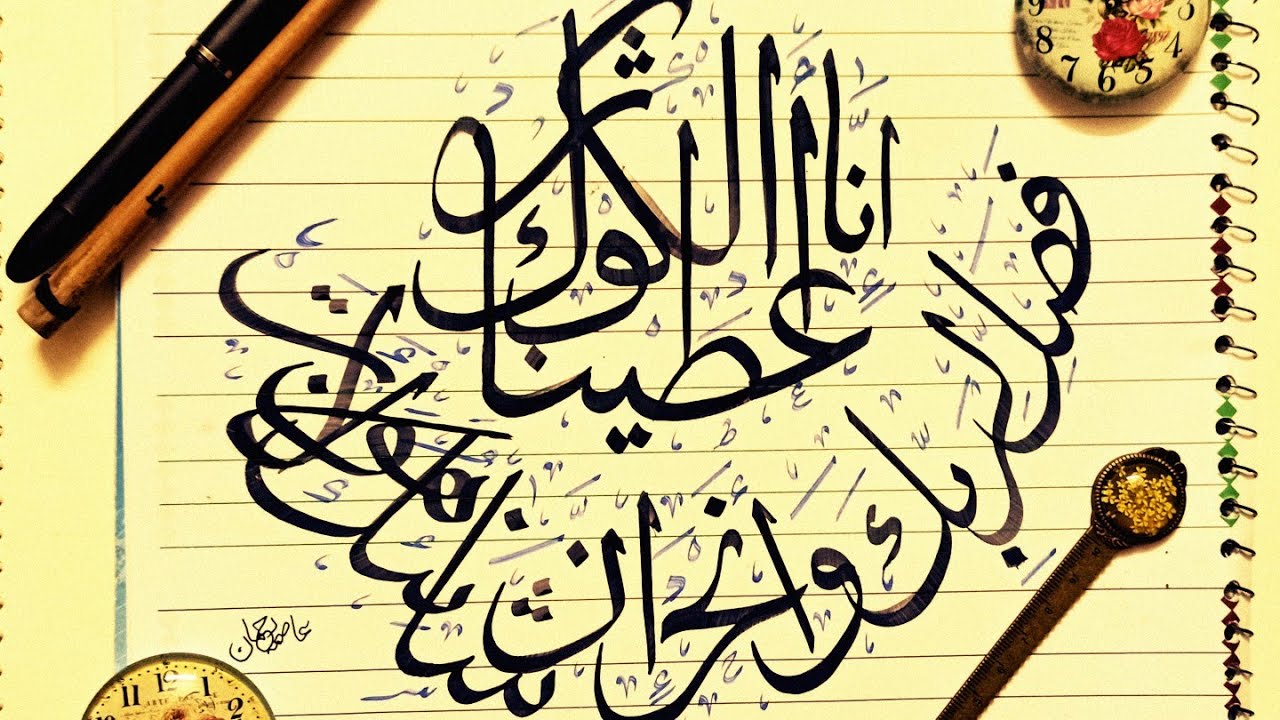 انا أعطيناك الكوثر
فصل لربك وانحر
ان شانئك هو الابتر
عاصمہ رحمان
9 8 7 6 5 4 3
11 12 1 2